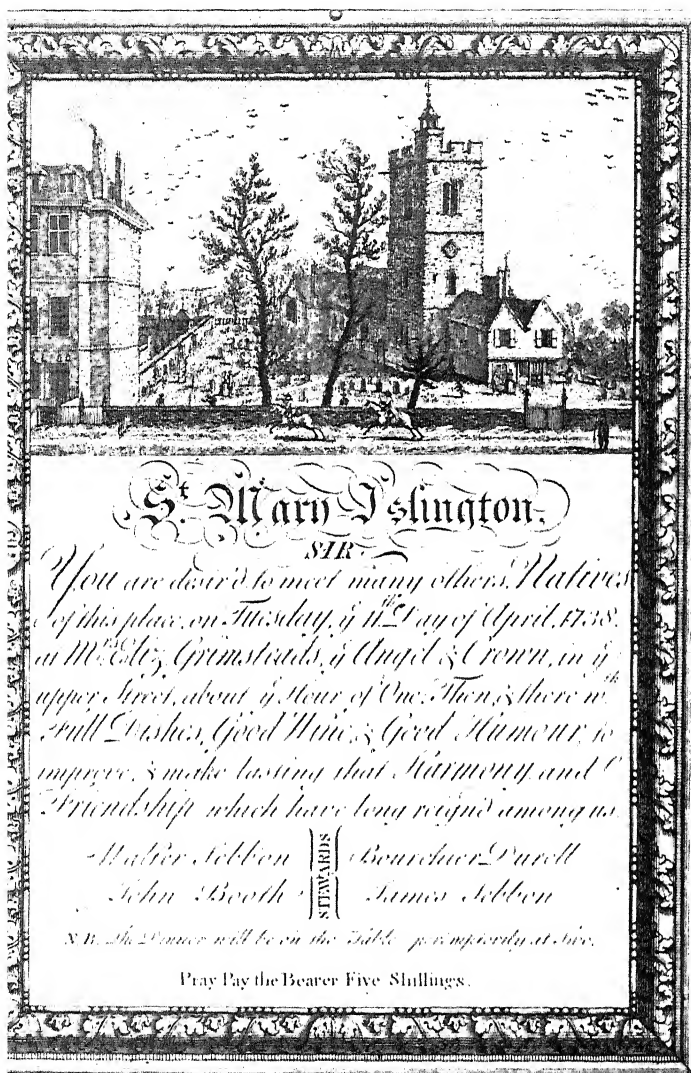 St. Mary Islington.
SIR
You are desir'd to meet many others, Natives
of this place, on Tuesday, ye 11th Day of April, 1738.
at Mrs Eliz. Grimsteads, ye Angel & Crown, in ye
upper Street, about ye Hour of One; Then, & there wth
Full Dishes, Good Wine, & Good Humour, to
improve, & make lasting that Harmony, and
Friendship which have long reign'd among us.
Walter Sebbon
STEWARDS
Bourchier Durell
John Booth
James Sebbon
N.B. The Dinner will be on the Table peremptorily at Two.
Pray Pay the Bearer Five Shillings.